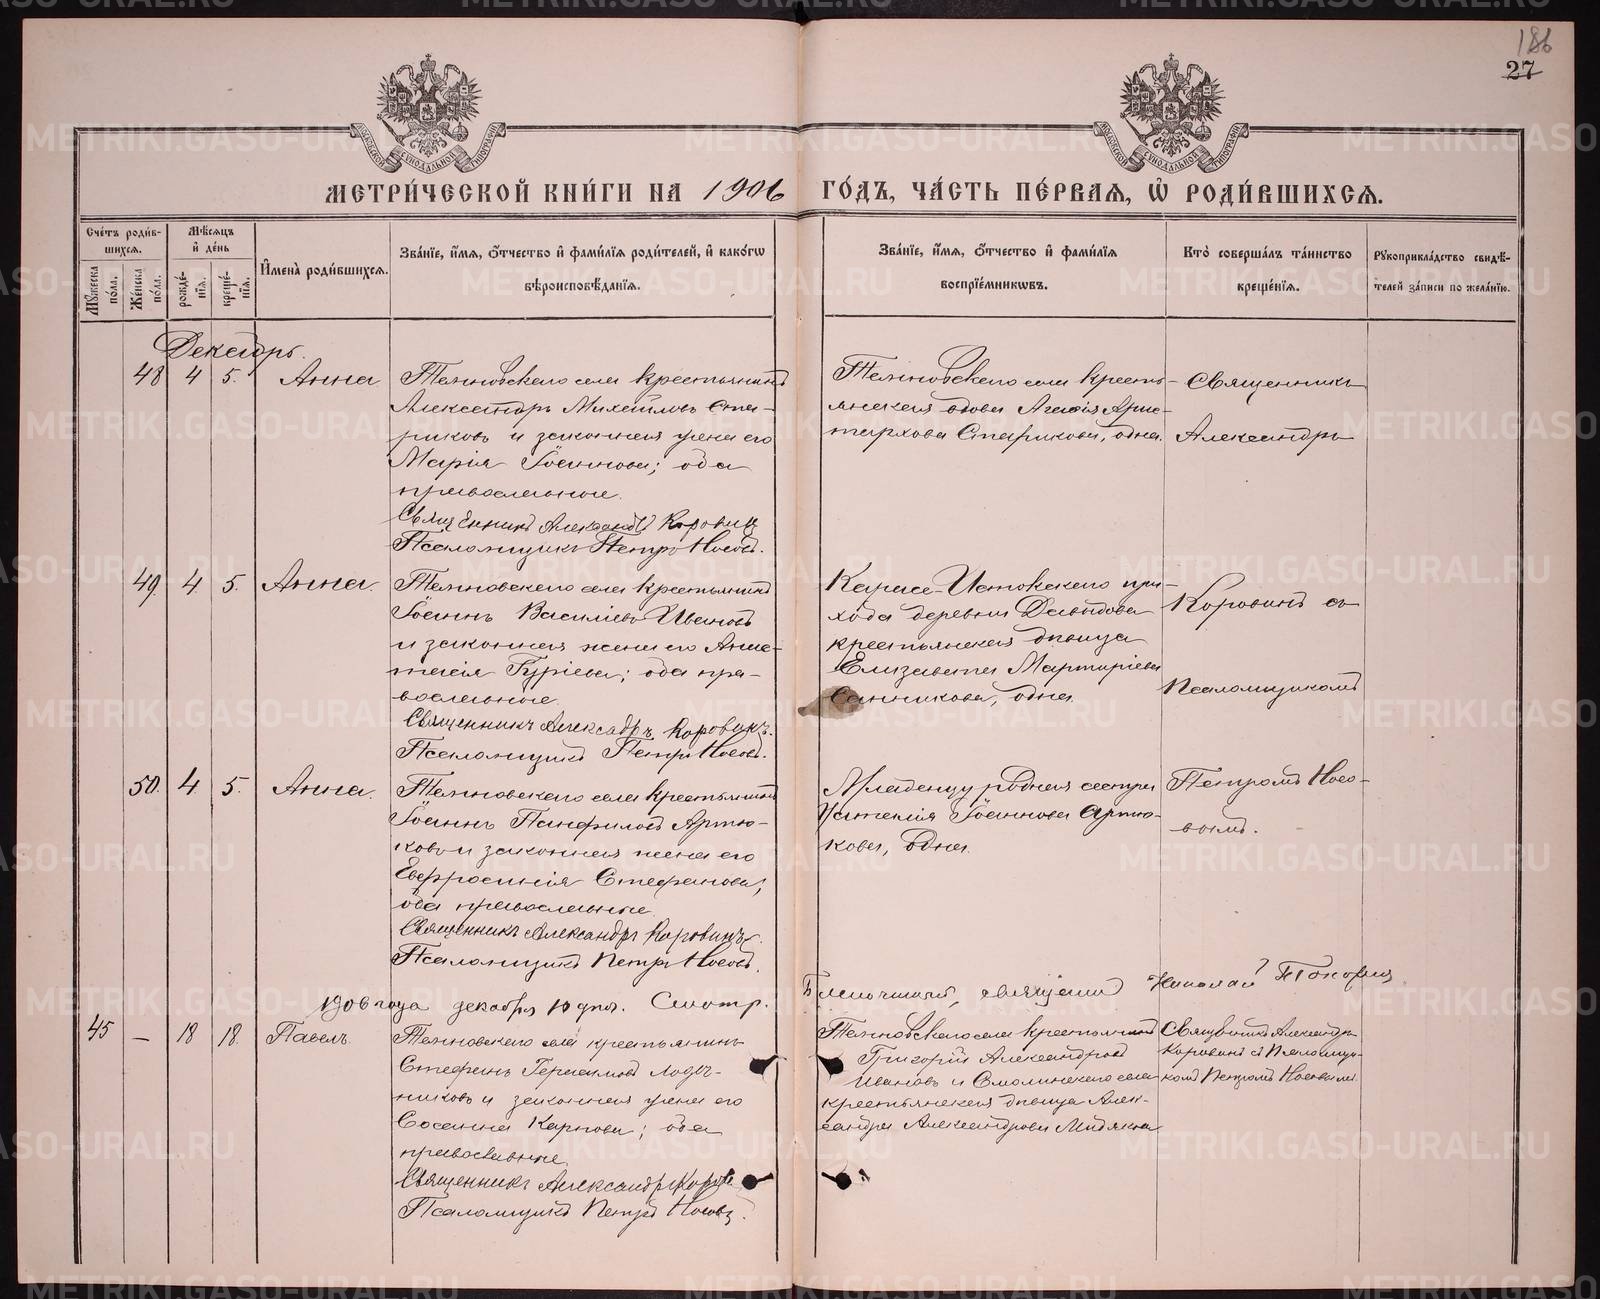 186
27
МЕТРИ́ЧЕСКОЙ КНИ́ГИ НА 1906 ГО́ДЪ, ЧА́СТЬ ПЕ́РВАЯ, Ѡ҆ РОДИ́ВШИХСЯ.
Сче́тъ роди́в-
шихся.
Мꙋ́жеска по́ла.
Же́нска по́ла.
Мѣ́сяцъ и҆ де́нь
рожде́-
нїя.
креще́-
нїя.
И҆мена̀ роди́вшихся.
Зва́нїе, и҆́мя, ѻ҆́тчество и҆ фами́лїя роди́телей, и҆ како́гѡ
вѣроисповѣ́данїя.
Зва́нїе, и҆́мя, ѻ҆́тчество и҆ фами́лїя
воспрїе́мникѡвъ.
Кто̀ соверша́лъ та́инство
креще́нїя.
Рꙋкоприкла́дство свидѣ́-
телей за́писи по жела́нїю.
Декабрь.
48 4 5. Анна
Темновскаго села крестьянинъ
Александръ Михайловъ Ста-
риковъ и законная жена его
Марія Іоаннова; оба
православные.
Священникъ Александръ Коровинъ
Псаломщикъ Петръ Носовъ.
Темновскаго села кресть-
янская вдова Агафія Арис-
тархова Старикова, одна.
Священникъ
Александръ
49. 4 5. Анна.
Темновскаго села крестьянинъ
Іоаннъ Василіевъ Ивановъ
и законная жена его Анас-
тасія Гуріева; оба пра-
вославные.
Священникъ Александръ Коровинъ.
Псаломщикъ Петръ Носовъ.
Карасе-Истокскаго при-
хода деревни Давыдова
крестьянская дѣвица
Елизавета Мартиріева
Санникова, одна.
Коровинъ съ
псаломщикомъ
50. 4. 5. Анна.
Темновскаго села крестьянинъ
Іоаннъ Панфиловъ Артю-
ковъ и законная жена его
Евфросинія Стефанова;
оба православные.
Священникъ Александръ Коровинъ.
Псаломщикъ Петръ Носовъ.
Младенцу родная сестра
Наталія Іоаннова Артю-
кова, одна.
Петромъ Носо-
вымъ.
1906 года декабря 10 дня. Смотр. Благочинный, священникъ Николай
45 — 18 18. Павелъ.
Темновскаго села крестьянинъ
Стефанъ Герасимовъ Лодоч-
никовъ и законная жена его
Сосанна Карпова; оба
православные.
Священникъ Александръ Коров
Псаломщикъ Петръ Носовъ.
Темновскаго села крестьянинъ
Григорій Александровъ
Ивановъ и Смолинскаго села
крестьянская дѣвица Алек-
сандра Александрова
Священникъ Александръ
Коровинъ съ псаломщи-
комъ Петромъ Носовымъ.
METRIKI.GASO-URAL.RU